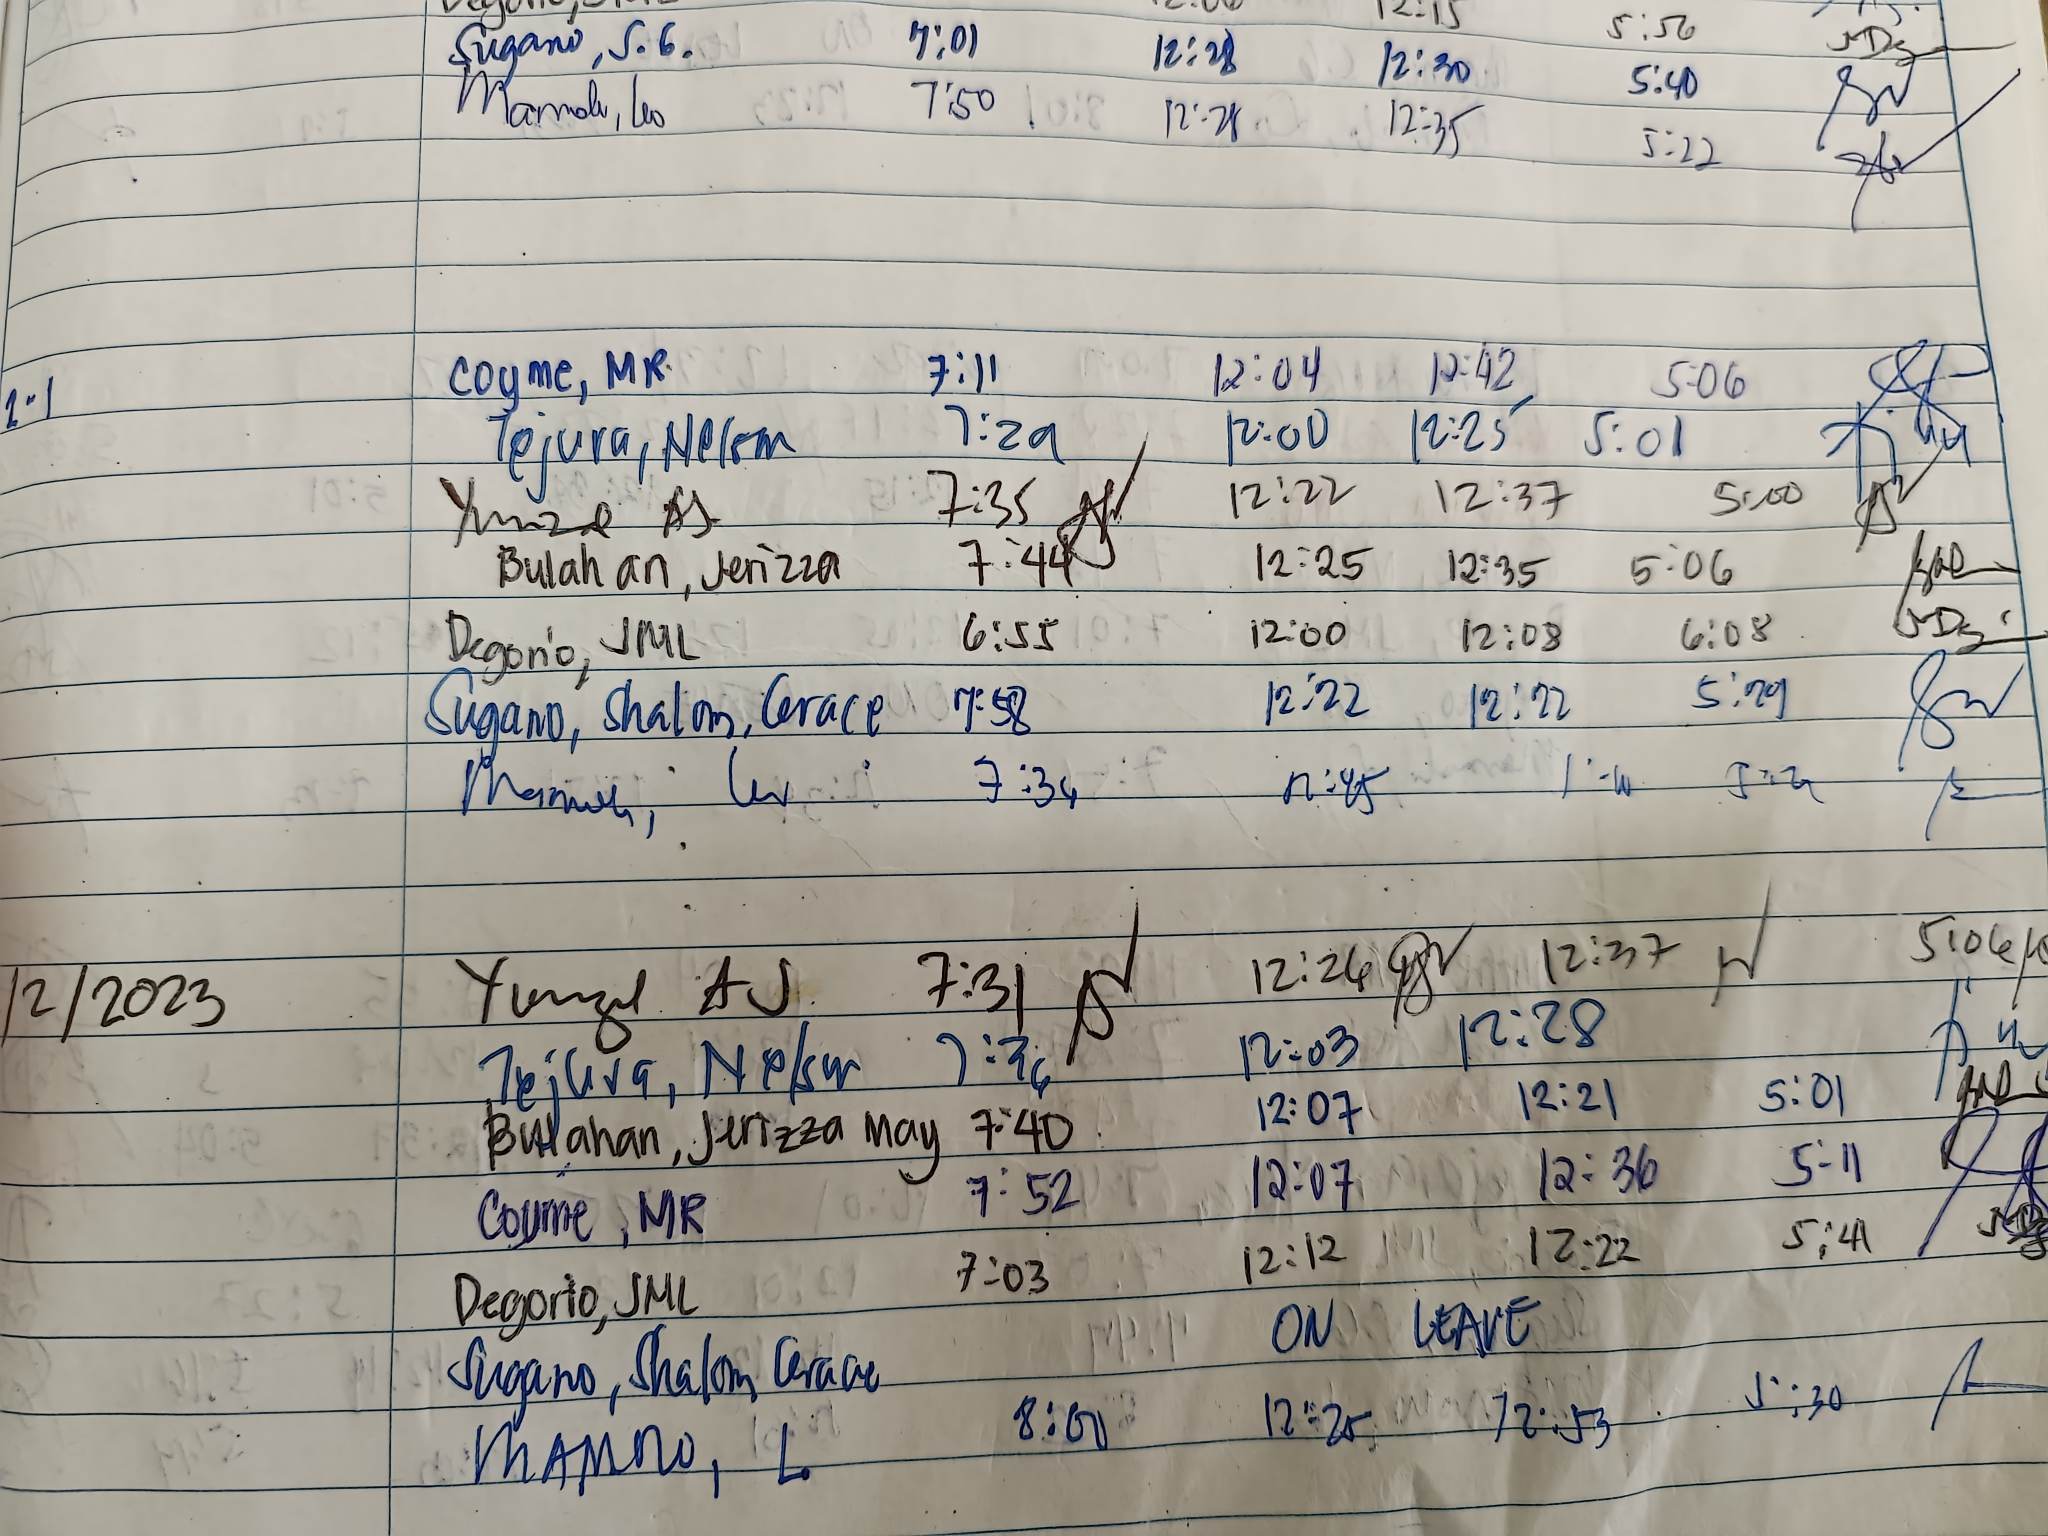 12:15 5:56
Sugano, S.G. 7:01 12:28 12:30 5:40
7:50 12:28 12:35 5:22
Coyme, MR. 7:11 12:04 12:42 5:06
Tejura, Nelson 7:29 12:00 12:25 5:01
AJ 7:35 12:22 12:37 5:00
Bulahan, Jerizza 7:44 12:25 12:35 5:06
Degorio, JML 6:55 12:00 12:08 6:08
Sugano, Shalom, Gerace 7:58 12:22 12:22 5:29
7:34 12:45
12/2023 AJ 7:31 12:26 12:37 5:06
Tejura, Nelson 7:36 12:03 12:28
Bulahan, Jerizza May 7:40 12:07 12:21 5:01
Coyme, MR 7:52 12:07 12:36 5:11
Degorio, JML 7:03 12:12 12:22 5:41
Sugano, Shalom Gerace ON LEAVE
L. 8:00 12:25 12:53 5:30